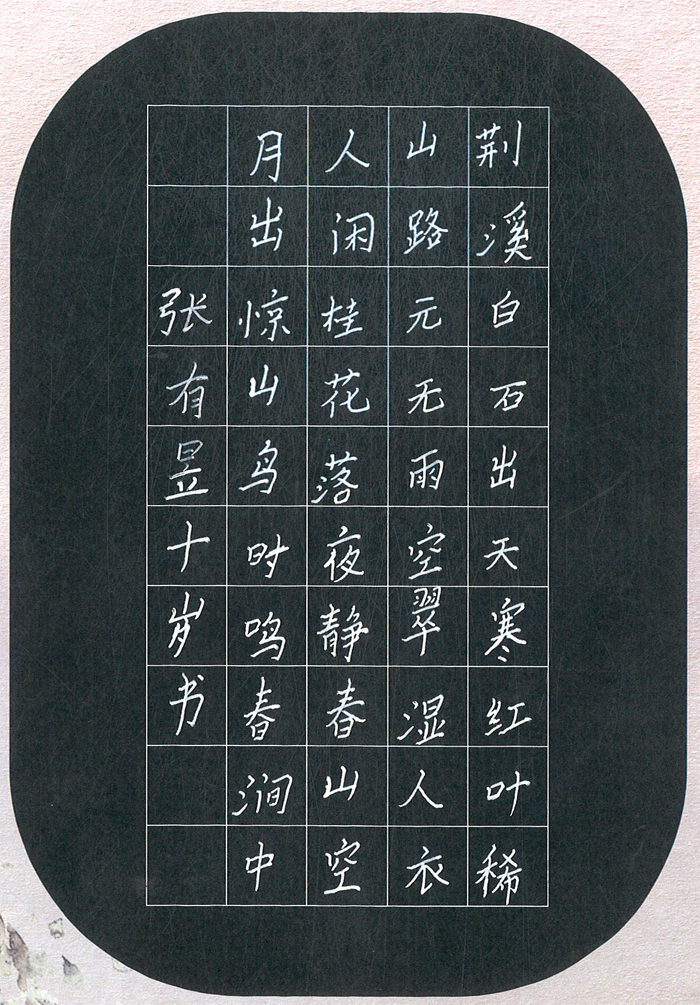 荆溪白石出天寒红叶稀
山路元无雨空翠湿人衣
人闲桂花落夜静春山空
月出惊山鸟时鸣春涧中
张有昱十岁书